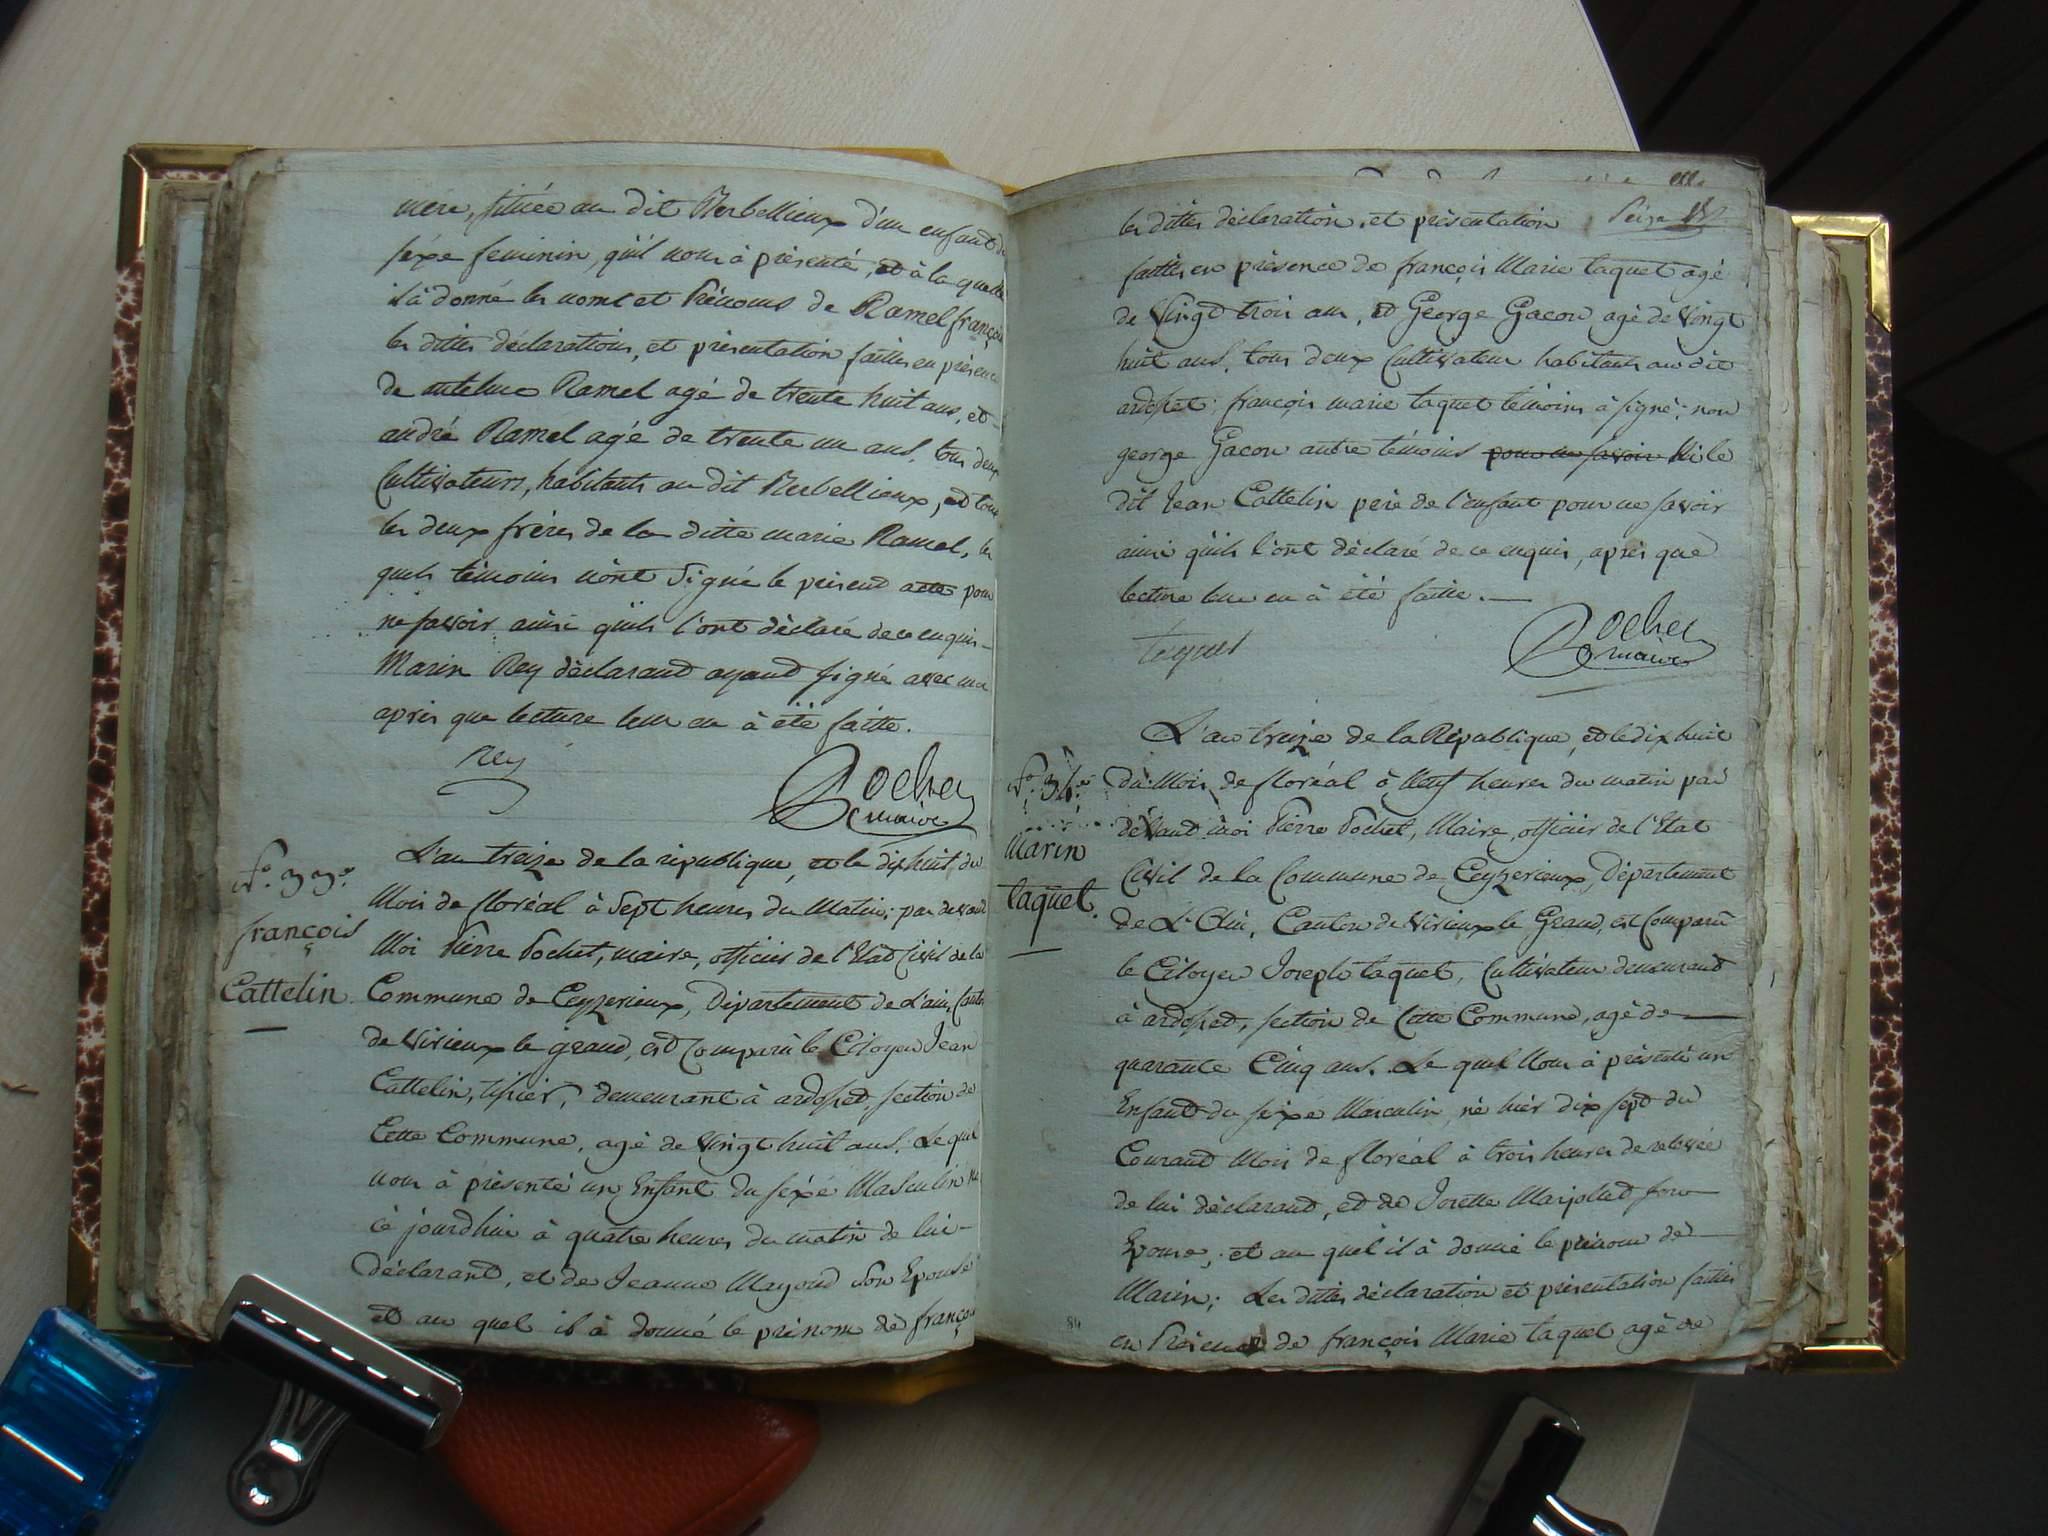 mere, située au dit Nerbellieux d'un enfant du
séxe feminin, qu'il nous à présenté, et à la quelle
il à donné les noms et Prénoms de Ramel françoise
les dittes déclarations, et présentation faittes en présence
de antelme Ramel agé de trente huit ans, et
andré Ramel agé de trente un ans, tous deux
Cultivateurs, habitants au dit Nerbellieux, et tous
les deux frères de la ditte marie Ramel, les
quels témoins n'ont Signé le présend acte pour
ne savoir ainsi qu'ils l'ont déclaré de ce enquis
Marin Rey déclarand ayand signé avec moi
après que lecture leur en à été faitte.
Rey
Pochet
maire
N.° 33.e
françois
Cattelin
L'an treize de la république, et le dix huit du
Mois de floréal à Sept heures du Matin; par devand
Moi Pierre Pochet, maire, officier de l'Etat Civil de la
Commune de Ceyzerieux, Département de L'ain, Canton
de Virieux le grand, est Comparû le Citoyen Jean
Cattelin, tisier, demeurant à ardosset, section de
Cette Commune, agé de Vingt huit ans. Le quel
nous à présenté un Enfant du séxe Masculin né
ce jourdhui à quatre heures du matin de lui
déclarant, et de Jeanne Mayoud Son Epouse
et au quel il à donné le prénom de françois
les dittes déclaration, et présentation
faittes en présence de françois Marie taquet agé
de Vingt trois ans, et George Gacon agé de Vingt
huit ans, tous deux Cultivateurs habitants au dit
ardosset; françois marie taquet témoins à signé; non
george Gacon autre témoins pour ne savoir Ni le
dit Jean Cattelin pere de l'enfant pour ne savoir
ainsi qu'ils l'ont déclaré de ce enquis, après que
lecture leur en à été faitte.
taquet
Pochet
maire
N.° 34.e
Marin
taquet.
L'an treize de la République, et le dix huit
du Mois de floréal à Neuf heures du matin par
devand moi Pierre Pochet, Maire, officier de l'Etat
Civil de la Commune de Ceyzerieux, Département
de L'Ain, Canton de Virieux le Grand, est Comparû
le Citoyen Joseph taquet, Cultivateur demeurand
à ardosset, section de Cette Commune, agé de
quarante Cinq ans. Le quel Nous à présenté un
Enfant du séxe Masculin, né hier dix sept du
Courand Mois de floréal à trois heures de relevée
de lui déclarand, et de Josette Marjollet son
Epouse; et au quel il à donné le prénom de
Marin; Les dittes déclaration et présentation faittes
en Présence de françois Marie taquet agé de
84